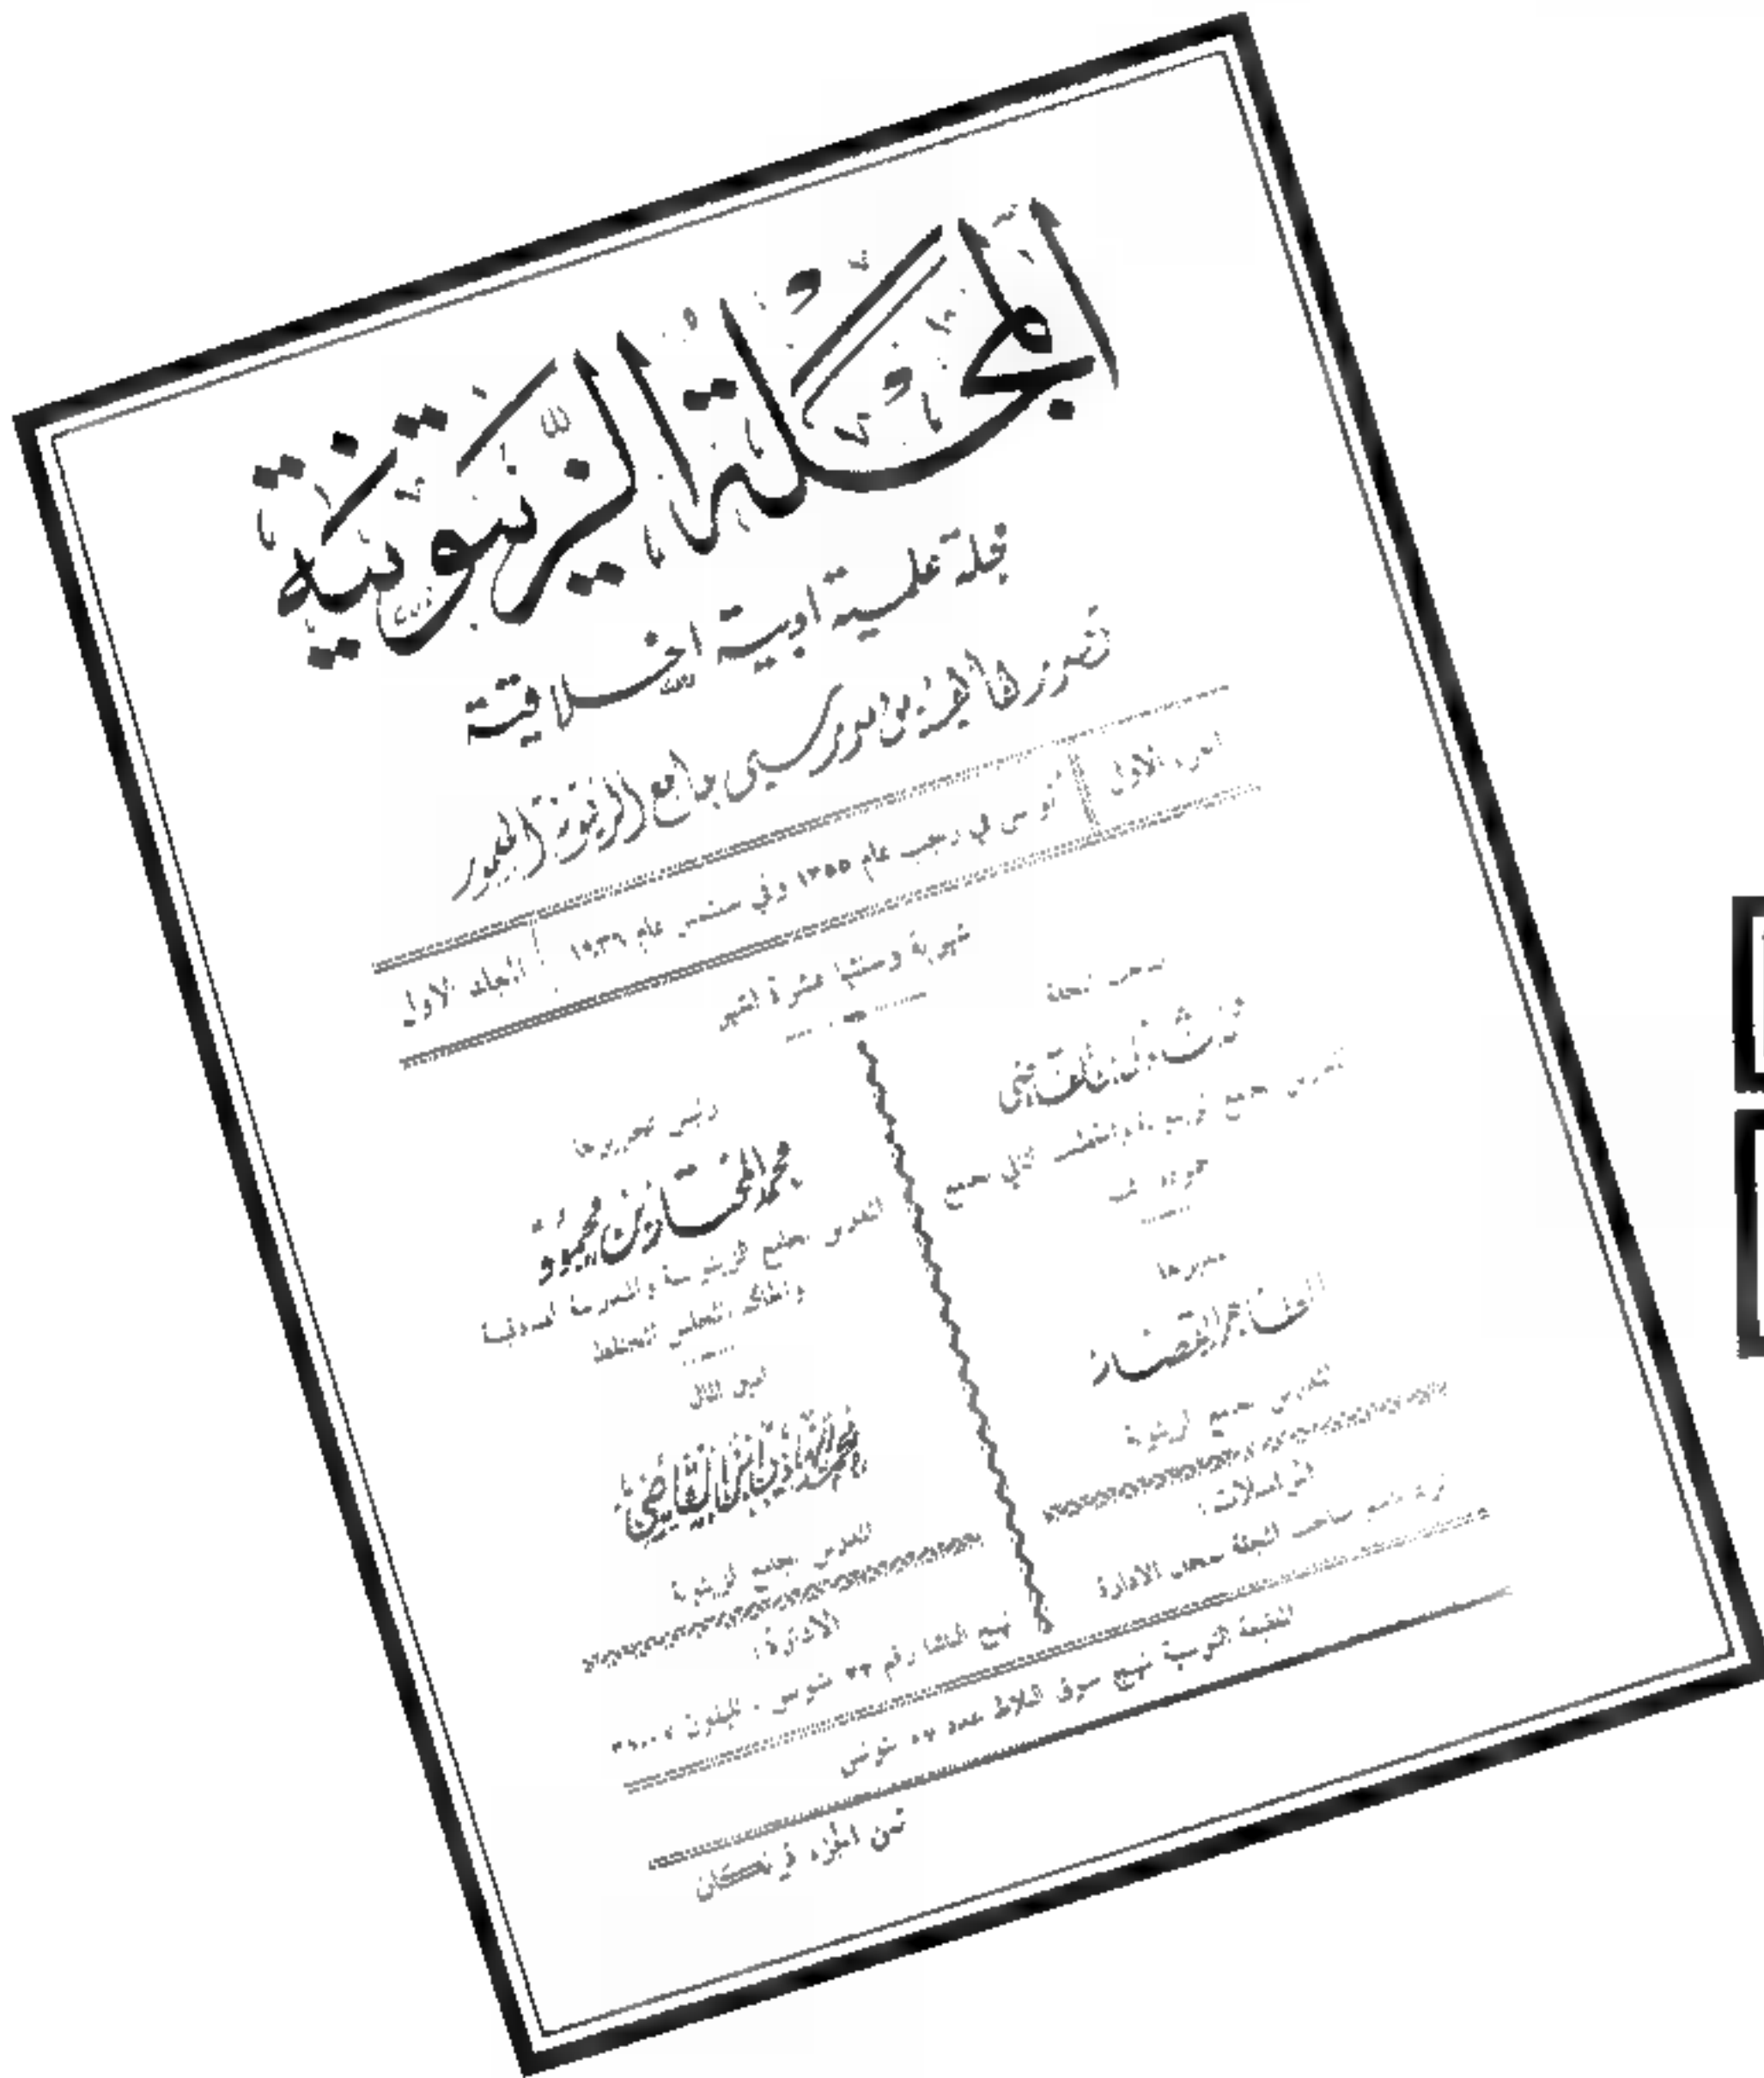 المجلة الزيتونية
مجلة علمية ادبية اخلاقية
تصدرها هيئة من مدرسي جامع الزيتونة المعمور
الجزء الاول
تونس في رجب عام ١٣٥٥ وفي سبتمبر عام ١٩٣٦
المجلد الاول
شهرية وسنتها عشرة اشهر
صاحب المجلة
محمد الشاذلي بن القاضي
مديرها
الطاهر القصار
المدرس بجامع الزيتونة
المراسلات :
ترسل باسم صاحب المجلة بمحل الادارة
رئيس تحريرها
محمد المختار بن محمود
المدرس بجامع الزيتونة والمدرسة الصادقية
امين المال
محمد الهادي ابن القاضي
المدرس بجامع الزيتونة
الادارة :
نهج الباشا رقم ٣٣ تونس - تليفون
المطبعة التونسية نهج سوق البلاط عدد ٥٧ تونس
ثمن الجزء فرنكان